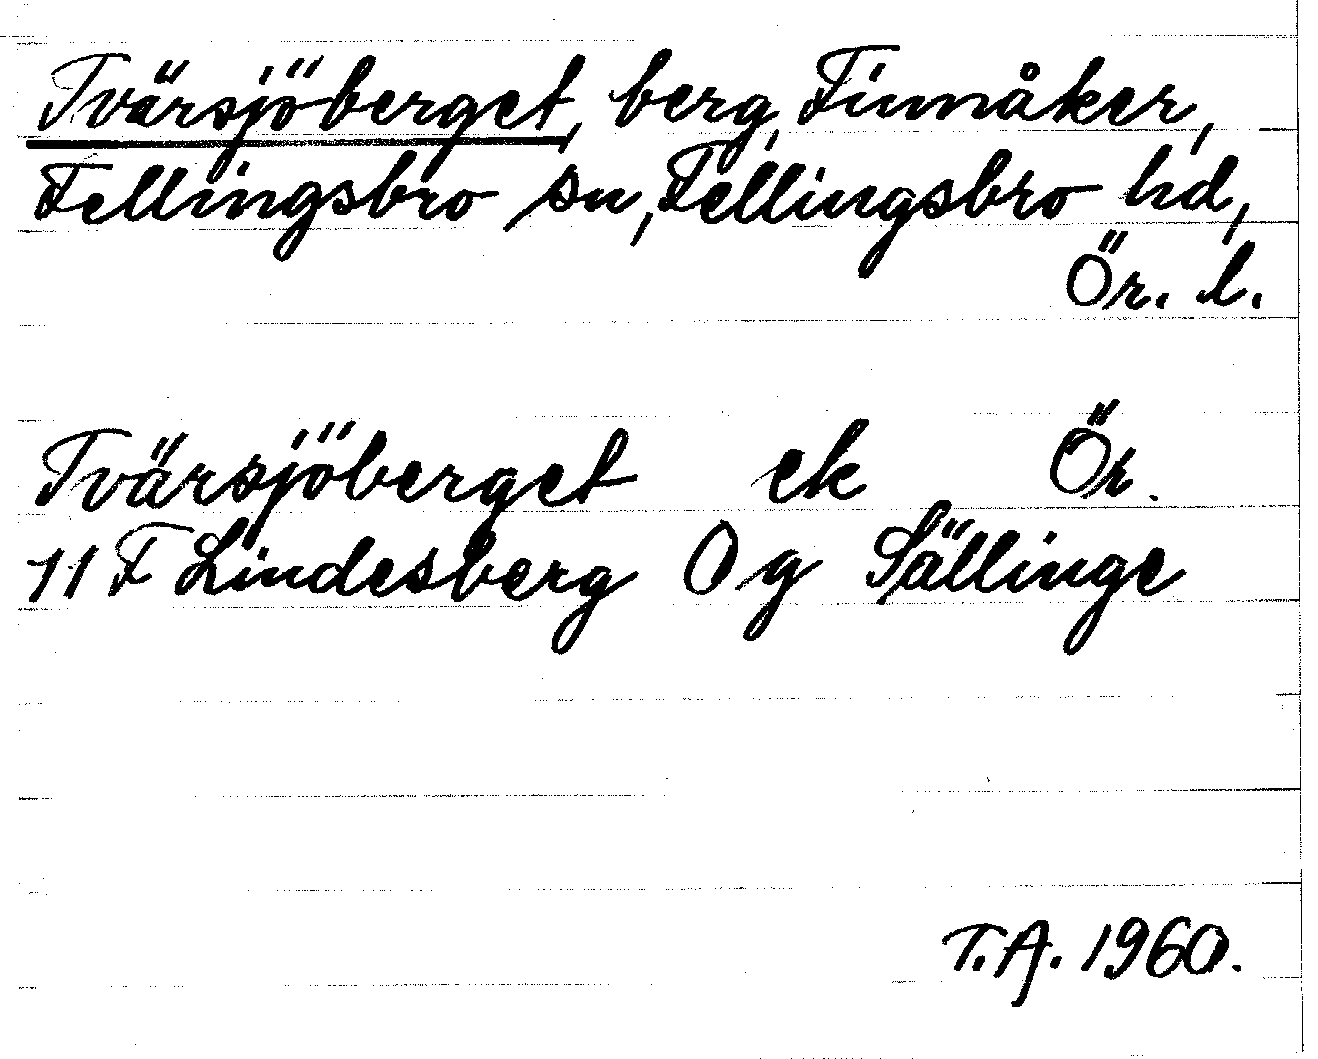 Tvärsjöberget, berg, Finnåker,
Fellingsbro sn, Fellingsbro hd,
Ör. l.
Tvärsjöberget ek Ör.
11 F Lindesberg 0 g Sällinge
T.A. 1960.